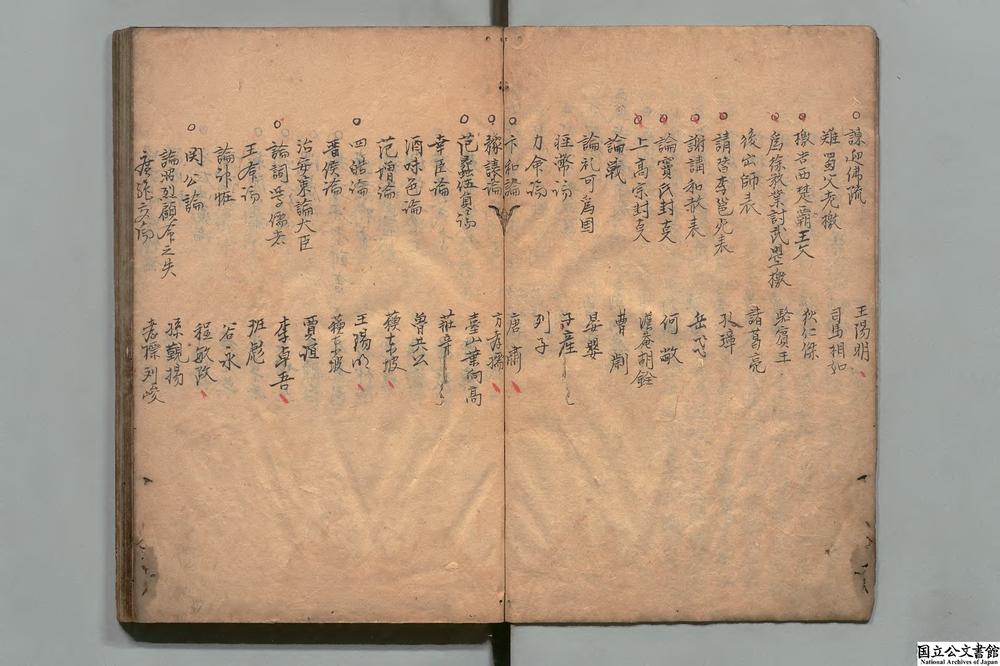 ○諫迎佛疏　王陽明
難蜀父老檄　司馬相如
○檄告西楚霸王文　狄仁傑
○為徐敬業討武曌檄　駱賓王
後出師表　諸葛亮
○請答李邕死表　孔璋
○謝講和赦表　岳飛
○論竇氏封事　何敞
○上高宗封事　澹菴胡銓
論戰　曹劌
論礼可為国　晏嬰
輕幣論　子產
力命論　列子
○卞和論　唐肅
○豫讓論　方孝孺
○范蠡伍員論　臺山葉向高
幸臣論　莊辛
酒味色論　魯共公
范增論　蘇東坡
○四皓論　王陽明
○晉侯論　蘇東坡
治安策論大臣　賈誼
○論詞學儒夫　李卓吾
王命論　班彪
論神怪　谷永
○関公論　程敏政
論昭烈顧命之失　孫覿揚
廣絕交論　孝標劉峻
国立公文書館
National Archives of Japan